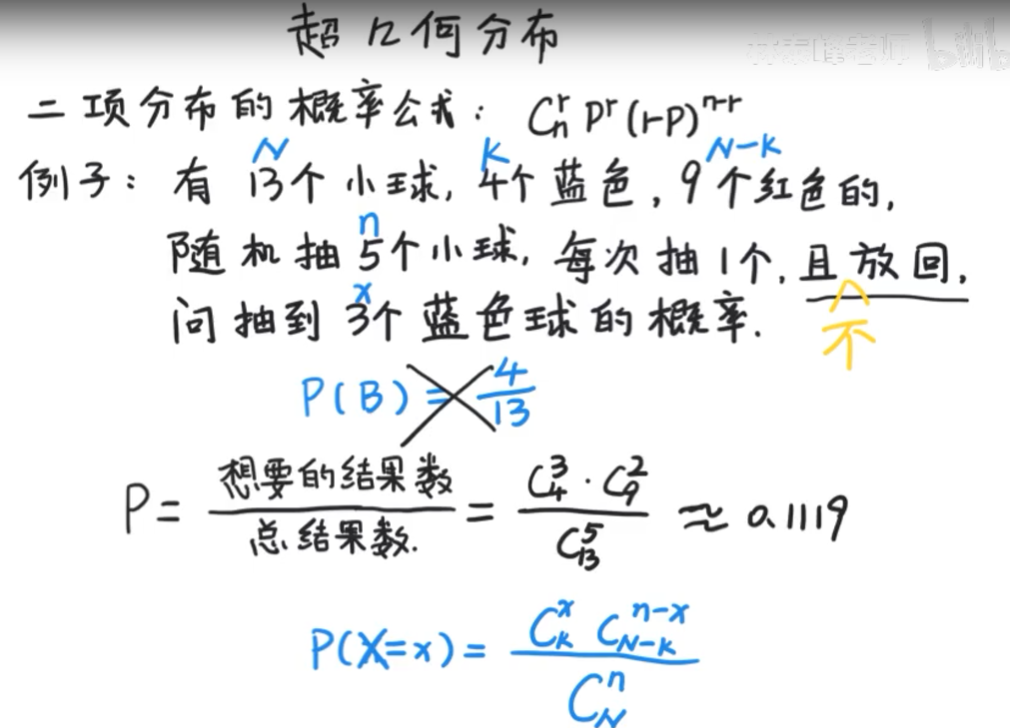 超几何分布
林忠峰老师 bilibili
二项分布的概率公式: C_n^r P^r (1-P)^{n-r}
N K N-K
例子: 有 13个小球, 4个蓝色, 9个红色的,
n
随机抽5个小球, 每次抽1个, 且放回,
x 不
问抽到 3个蓝色球的概率.
P(B) = 4/13
P = 想要的结果数/总结果数. = C_4^3 · C_9^2 / C_13^5 ≈ 0.1119
P(X=x) = C_K^x C_{N-K}^{n-x} / C_N^n